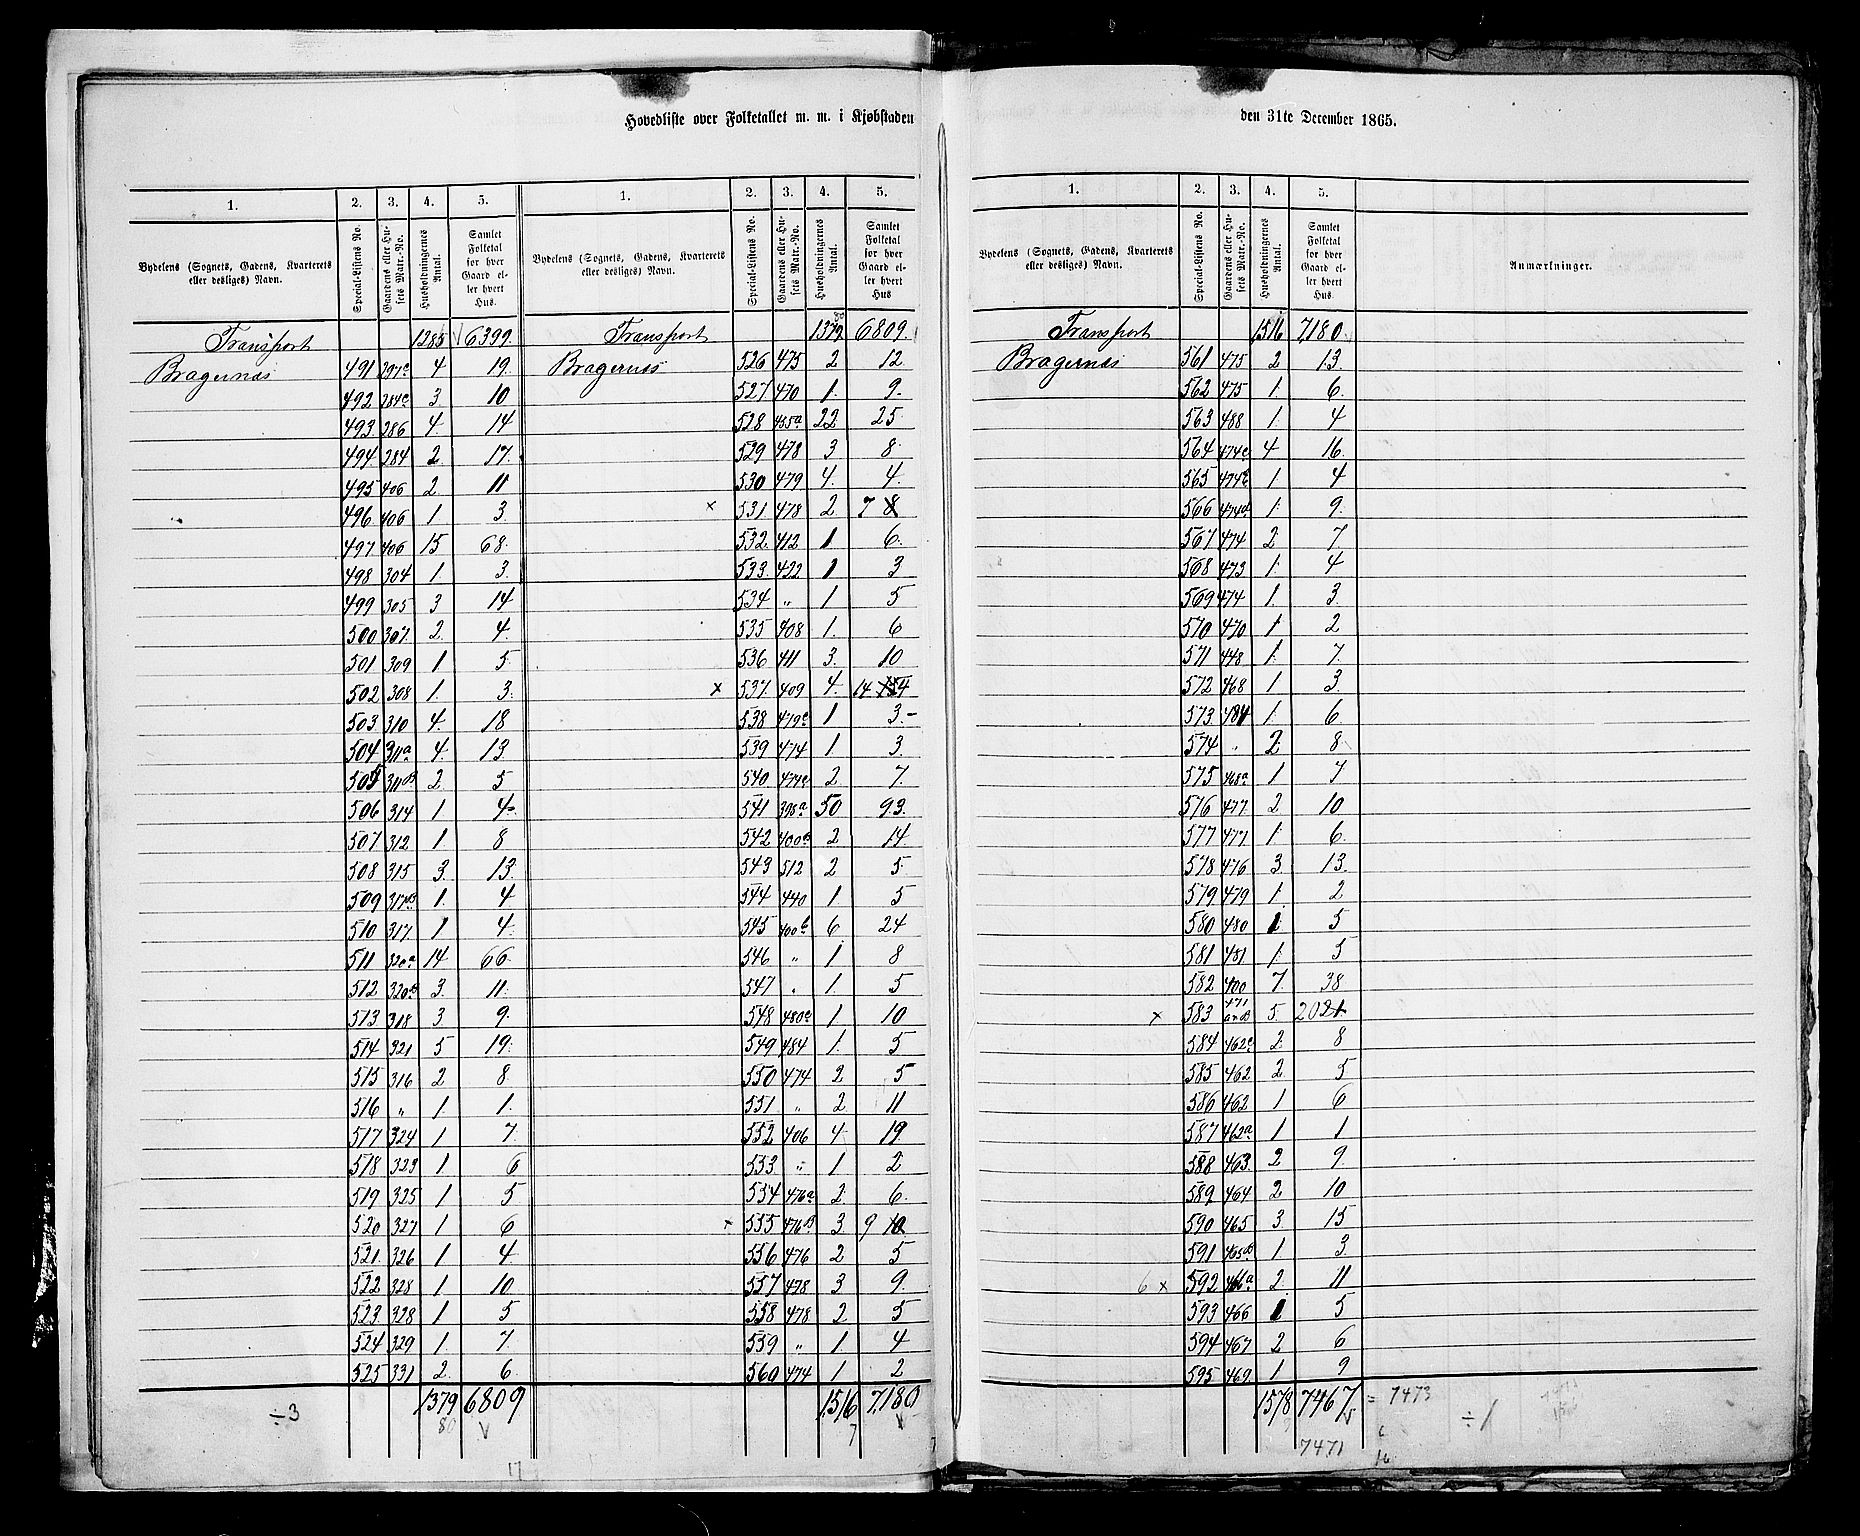 Hovedliste over Folketallet m. m. i Kjøbstaden
1. 2. 3. 4. 5.
Bydelens (Sognets, Gadens, Kvarterets eller desliges) Navn. Special-Listens No. Gaardens eller Husets Matr.-No. Husholdningernes Antal. Samlet Folketal for hver Gaard eller hvert Hus.
Transport 1285 6399
Bragernæs 491 297c 4 19.
492 284c 3 10
493 286 4. 14
494 284 2 17.
495 406 2. 11
496 406 1 3.
497 406 15 68.
498 304 1 3.
499 305 3 14
500 307. 2. 4.
501 309 1 5.
502 308 1. 3.
503 310 4. 18
504 311a 4. 13
505 311B 2 5
506 314 1 4-
507 312 1 8
508 315 3. 13.
509 317B 1. 4
510 317. 1 4.
511 320a 14 66.
512 320B 3. 11.
513 318 3. 9.
514 321 5 19.
515 316 2 8.
516 " 1 1.
517 324 1 7.
518 323 1 6
519 325 1 5
520 327 1 6
521. 326 1 4.
522 328 1 10
523. 328 1 5
524 329 1. 7.
525 331 2. 6
1379 6809
÷3 80 V
17
1. 2. 3. 4. 5.
Bydelens (Sognets, Gadens, Kvarterets eller desliges) Navn. Special-Listens No. Gaardens eller Husets Matr.-No. Husholdningernes Antal. Samlet Folketal for hver Gaard eller hvert Hus
Transport 1379 6809.
Bragernæs 526 475 2 12
527. 470 1. 9.
528 455a 22 25.
529 478 3 8.
530 479 4. 4.
x 531 478 2 7 8
532. 412 1 6.
533. 422 1 3
534 " 1 5
535 408 1. 6
536 411 3. 10
x 537. 409 4. 14 154
538 479c 1 3.-
539 474 1 3.
540 474c 2 7.
541 398a 50 93.
542 400B 2 14
543 512 2 5.
544 440 1 5
545 400b 6 24
546 " 1 8
547 " 1 5
548 480c 1 10
549 484 1. 5
550 474 2 5
551 " 2 11
552 406 4 19.
553. " 1 2
554 476a 2 6.
x 555 476B 3 9 10
556 476 2 5
557 478 3 9.
558 478 2 5
559 " 1 4
560 474 1 2
1516 7180
7 V
den 31te December 1865.
1. 2. 3. 4. 5.
Bydelens (Sognets, Gadens, Kvarterets eller desliges) Navn. Special-Listens No. Gaardens eller Husets Matr.-No. Husholdningernes Antal. Samlet Folketal for hver Gaard eller hvert Hus. Anmærkninger.
Transport 1516 7180.
Bragernæs 561 475 2 13.
562 475 1. 6.
563 488 1. 4
564 474c 4 16.
565 474c 1. 4
566 474d 1. 9.
567 474 2. 7.
568 473 1. 4
569 474 1. 3.
570 470 1 2
571 448 1. 7.
572 468 1 3.
573. 484 1. 6.
574 " 2 8
575 468a 1 7
576 477. 2 10
577 477 1. 6.
578 476 3. 13.
579 479 1. 2
580 480 1 5
581 481 1. 5
582 400 7. 38
x 583 471 a&B 5. 20 21
584 462c 2. 8
585 462 2 5
586 462 1 6
587 462a 1 1
588 463. 2 9.
589 464 2 10
590 465 3. 15
591 465B 1 3.
6 x 592 466a 2. 11
593 466 1 5
594 467 2 6
595 469. 1 9
1578 7467 = 7473 ÷1
7471 16